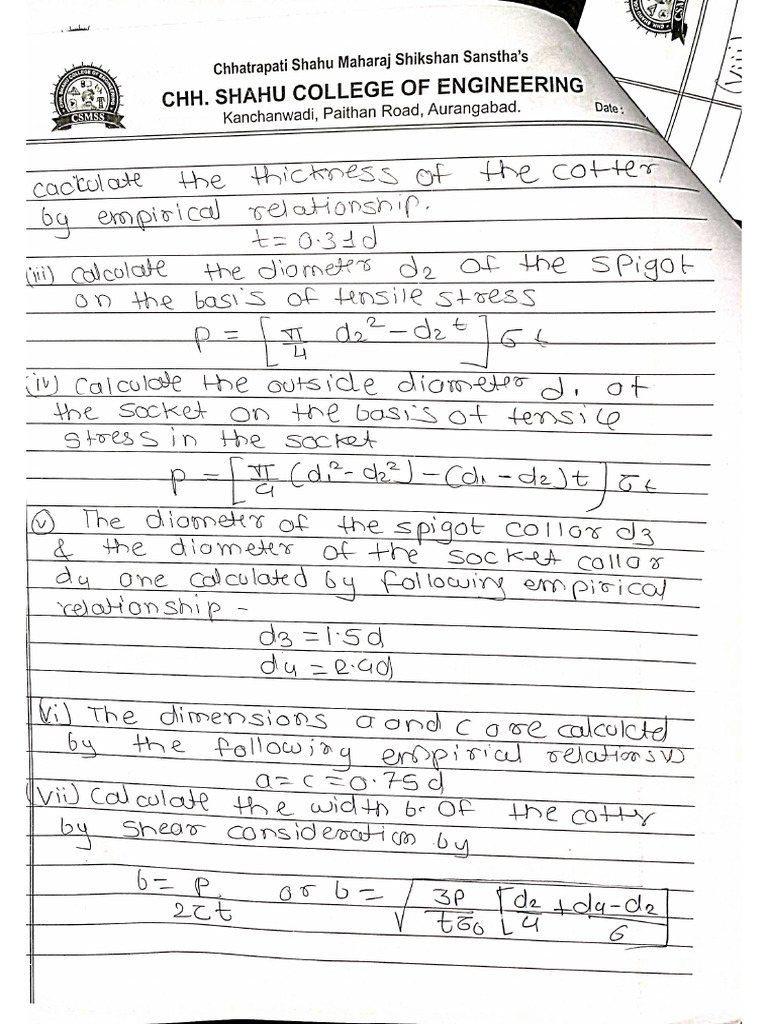 Chhatrapati Shahu Maharaj Shikshan Sanstha's
CHH. SHAHU COLLEGE OF ENGINEERING
Kanchanwadi, Paithan Road, Aurangabad.
Date:
CSMSS
(viii)
caclulate the thickness of the cotter
by empirical relationship.
t = 0.31d
(iii) Calculate the diameter d2 of the spigot
on the basis of tensile stress
P = [π/4 d2² - d2 t] σt
(iv) Calculate the outside diameter d1 of
the socket on the basis of tensile
stress in the socket
P = [π/4 (d1² - d2²) - (d1 - d2) t] σt
(v) The diameter of the spigot collar d3
& the diameter of the socket collar
d4 are calculated by following empirical
relationship -
d3 = 1.5d
d4 = 2.4d
(vi) The dimensions a and c are calculated
by the following empirical relations
a = c = 0.75d
(vii) Calculate the width b of the cotter
by shear consideration by
b = P/2τt or b = √(3P/tσb [d2/4 + d4-d2/6])